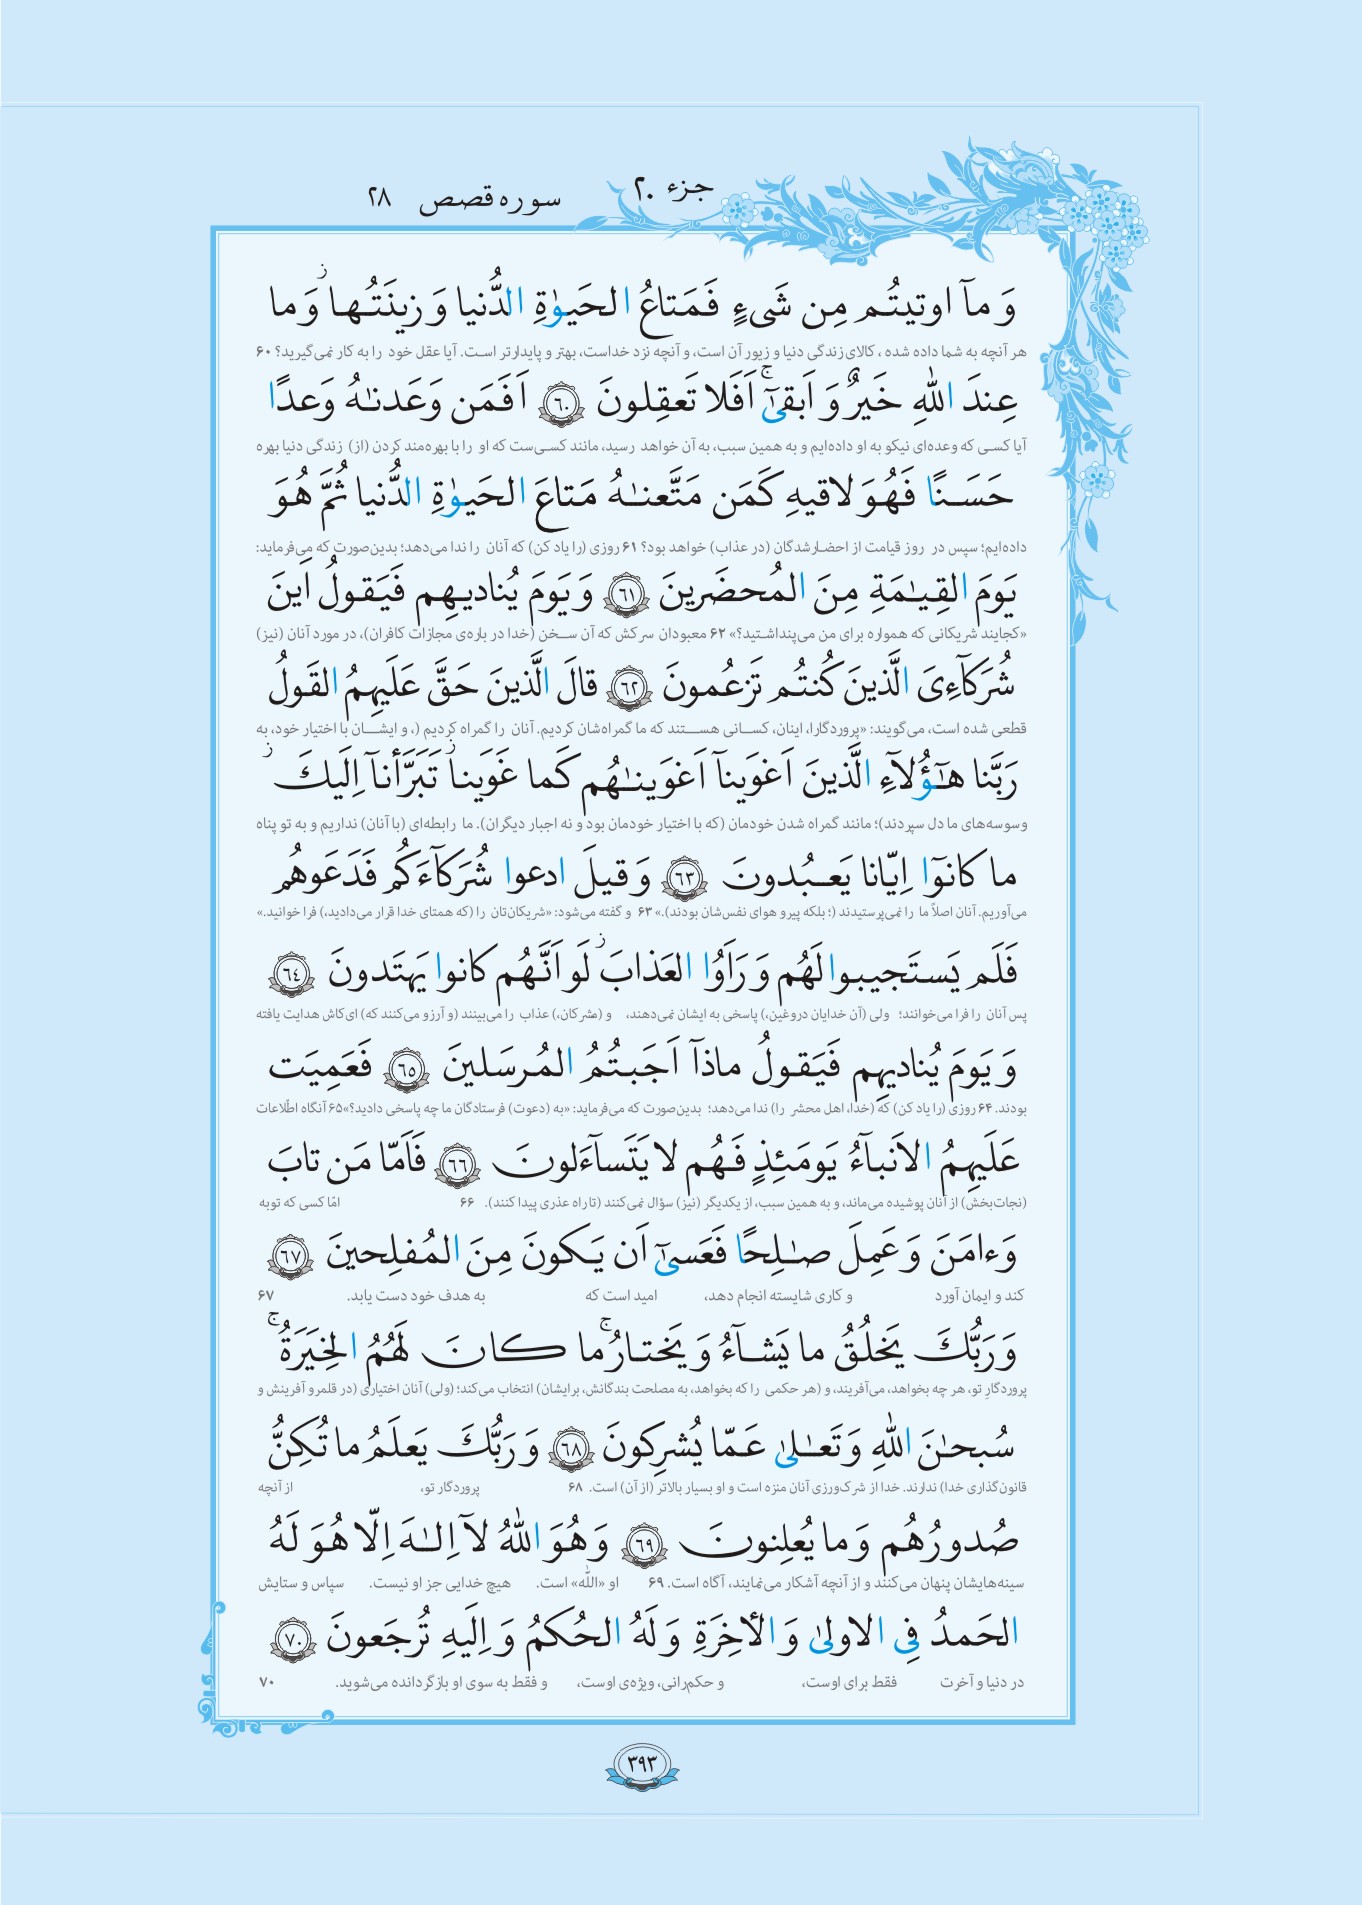 جزء ۲۰
سوره قصص ۲۸
وَ مآ اوتیتُم مِن شَیءٍ فَمَتاعُ الحَیوٰةِ الدُّنیا وَ زینَتُها ۚ وَ ما
هر آنچه به شما داده شده ، کالای زندگی دنیا و زیور آن است، و آنچه نزد خداست، بهتر و پایدارتر است. آیا عقل خود را به کار نمی‌گیرید؟ ۶۰
عِندَ اللّٰهِ خَیرٌ وَ اَبقیٰٓ ۚ اَفَلا تَعقِلونَ ﴿٦٠﴾ اَفَمَن وَعَدنٰهُ وَعدًا
آیا کسی که وعده‌ای نیکو به او داده‌ایم و به همین سبب، به آن خواهد رسید، مانند کسی‌ست که او را با بهره‌مند کردن (از) زندگی دنیا بهره
حَسَنًا فَهُوَ لاقیهِ کَمَن مَتَّعنٰهُ مَتاعَ الحَیوٰةِ الدُّنیا ثُمَّ هُوَ
داده‌ایم؛ سپس در روز قیامت از احضارشدگان (در عذاب) خواهد بود؟ ۶۱ روزی (را یاد کن) که آنان را ندا می‌دهد؛ بدین‌صورت که می‌فرماید:
یَومَ القِیٰمَةِ مِنَ المُحضَرینَ ﴿٦١﴾ وَ یَومَ یُنادیهِم فَیَقولُ اَینَ
«کجایند شریکانی که همواره برای من می‌پنداشتید؟» ۶۲ معبودان سرکش که آن سخن (خدا در باره‌ی مجازات کافران)، در مورد آنان (نیز)
شُرَکآءِیَ الَّذینَ کُنتُم تَزعُمونَ ﴿٦٢﴾ قالَ الَّذینَ حَقَّ عَلَیهِمُ القَولُ
قطعی شده است، می‌گویند: «پروردگارا، اینان، کسانی هستند که ما گمراه‌شان کردیم. آنان را گمراه کردیم (، و ایشان با اختیار خود، به
رَبَّنا هٰٓؤُلآءِ الَّذینَ اَغوَینآ اَغوَینٰهُم کَما غَوَینا ز تَبَرَّأنآ اِلَیکَ ز
وسوسه‌های ما دل سپردند)؛ مانند گمراه شدن خودمان (که با اختیار خودمان بود و نه اجبار دیگران). ما رابطه‌ای (با آنان) نداریم و به تو پناه
ما کانوٓا اِیّانا یَعبُدونَ ﴿٦٣﴾ وَ قیلَ ادعوا شُرَکآءَکُم فَدَعَوهُم
می‌آوریم. آنان اصلاً ما را نمی‌پرستیدند (؛ بلکه پیرو هوای نفس‌شان بودند).» ۶۳ و گفته می‌شود: «شریکان‌تان را (که همتای خدا قرار می‌دادید،) فرا خوانید.»
فَلَم یَستَجیبوا لَهُم وَ رَاَوُا العَذابَ ز لَو اَنَّهُم کانوا یَهتَدونَ ﴿٦٤﴾
پس آنان را فرا می‌خوانند؛ ولی (آن خدایان دروغین،) پاسخی به ایشان نمی‌دهند، و (مشرکان،) عذاب را می‌بینند (و آرزو می‌کنند که) ای‌کاش هدایت یافته
وَ یَومَ یُنادیهِم فَیَقولُ ماذآ اَجَبتُمُ المُرسَلینَ ﴿٦٥﴾ فَعَمِیَت
بودند. ۶۴ روزی (را یاد کن) که (خدا، اهل محشر را) ندا می‌دهد؛ بدین‌صورت که می‌فرماید: «به (دعوت) فرستادگان ما چه پاسخی دادید؟»۶۵ آنگاه اطّلاعات
عَلَیهِمُ الاَنبآءُ یَومَئِذٍ فَهُم لا یَتَسآءَلونَ ﴿٦٦﴾ فَاَمّا مَن تابَ
(نجات‌بخش) از آنان پوشیده می‌ماند، و به همین سبب، از یکدیگر (نیز) سؤال نمی‌کنند (تا راه عذری پیدا کنند). ۶۶ امّا کسی که توبه
وَ ءامَنَ وَ عَمِلَ صٰلِحًا فَعَسیٰٓ اَن یَکونَ مِنَ المُفلِحینَ ﴿٦٧﴾
کند و ایمان آورد و کاری شایسته انجام دهد، امید است که به هدف خود دست یابد. ۶۷
وَ رَبُّکَ یَخلُقُ ما یَشآءُ وَ یَختارُ ۚ ما کانَ لَهُمُ الخِیَرَةُ ۚ
پروردگارِ تو، هر چه بخواهد، می‌آفریند، و (هر حکمی را که بخواهد، به مصلحت بندگانش، برایشان) انتخاب می‌کند؛ (ولی) آنان اختیاری (در قلمرو آفرینش و
سُبحٰنَ اللّٰهِ وَ تَعٰلیٰ عَمّا یُشرِکونَ ﴿٦٨﴾ وَ رَبُّکَ یَعلَمُ ما تُکِنُّ
قانون‌گذاری خدا) ندارند. خدا از شرک‌ورزی آنان منزه است و او بسیار بالاتر (از آن) است. ۶۸ پروردگار تو، از آنچه
صُدورُهُم وَ ما یُعلِنونَ ﴿٦٩﴾ وَ هُوَ اللّٰهُ لآ اِلٰهَ اِلّا هُوَ لَهُ
سینه‌هایشان پنهان می‌کنند و از آنچه آشکار می‌نمایند، آگاه است. ۶۹ او «اللّٰه» است. هیچ خدایی جز او نیست. سپاس و ستایش
الحَمدُ فِی الاولیٰ وَ الأخِرَةِ وَ لَهُ الحُکمُ وَ اِلَیهِ تُرجَعونَ ﴿٧٠﴾
در دنیا و آخرت فقط برای اوست، و حکم‌رانی، ویژه‌ی اوست، و فقط به سوی او بازگردانده می‌شوید. ۷۰
۳۹۳